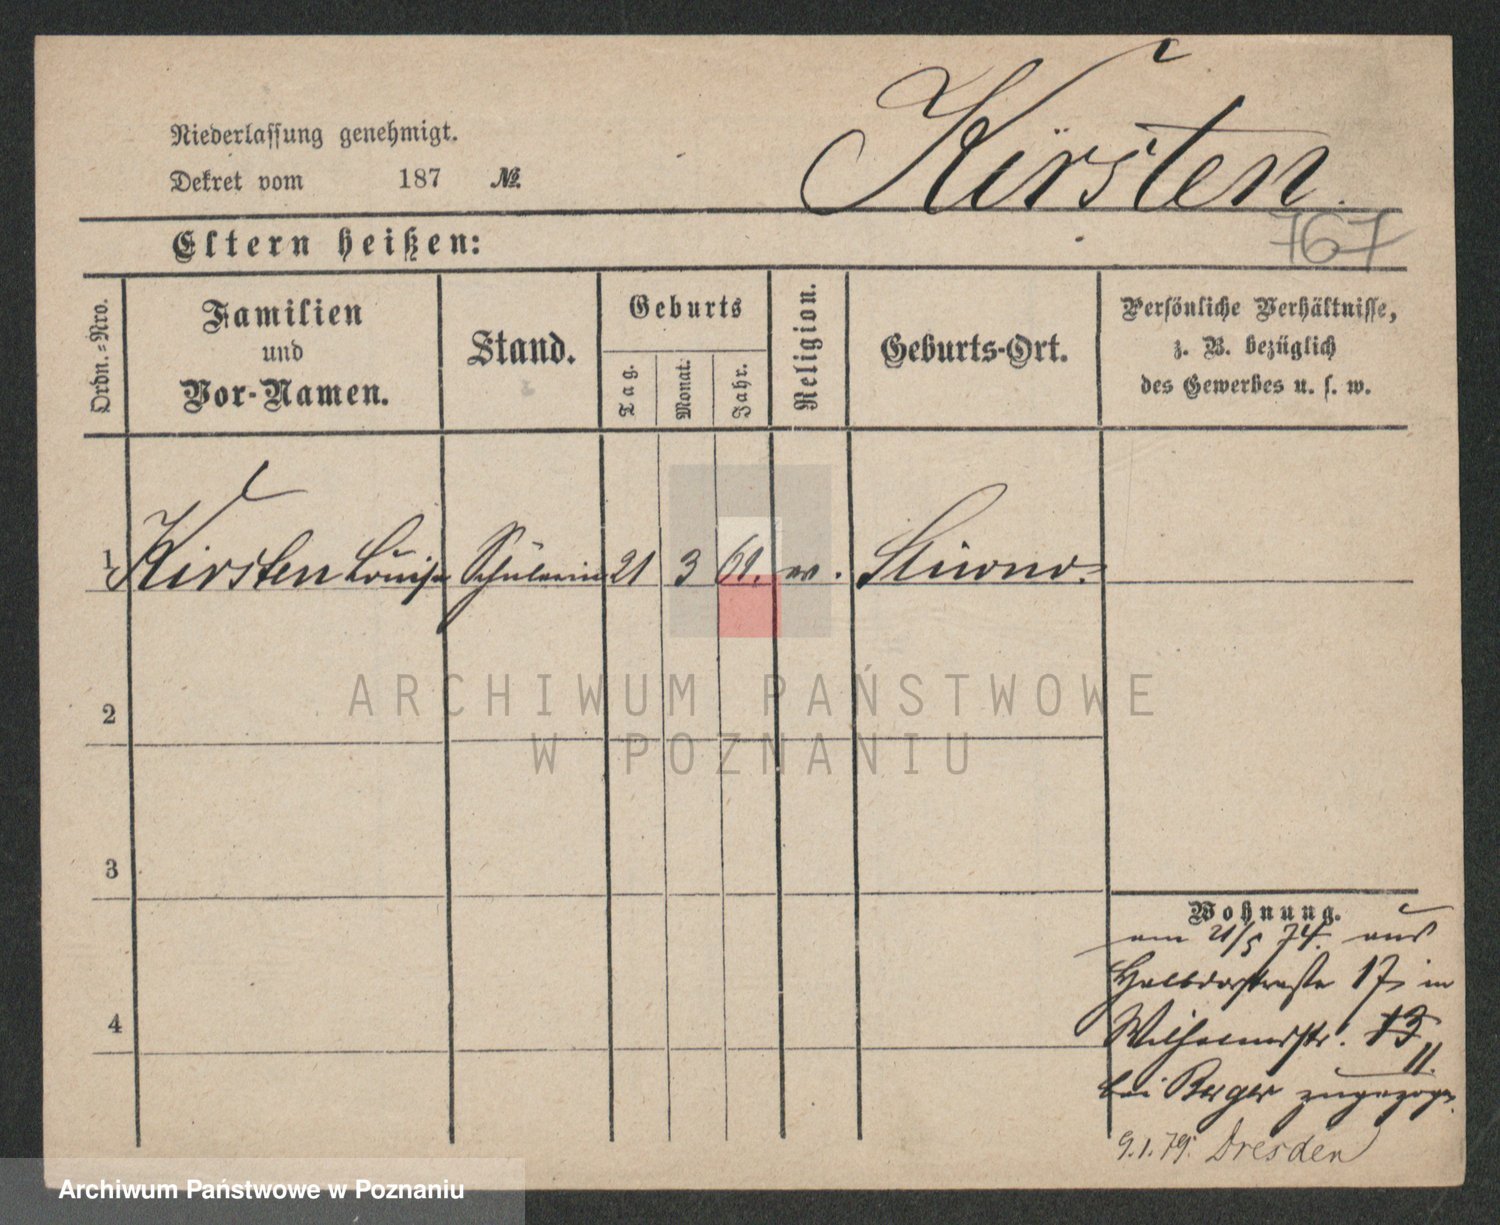 Kirsten.
Niederlassung genehmigt.
Dekret vom 187 №.
767
Eltern heißen:
Ordn.-Nro.
Familien
und
Vor-Namen.
Stand.
Geburts
Tag.
Monat.
Jahr.
Religion.
Geburts-Ort.
Persönliche Verhältnisse,
z. B. bezüglich
des Gewerbes u. s. w.
1 Kirsten Louise Schülerin 21 3 61.
2
3
4
Wohnung.
am 21/5 74. aus
Halbdorfstraße 17 in
Wilhelmstr. 13
11.
bei Berger zugezogen.
9.1.79. Dresden
ARCHIWUM PAŃSTWOWE
W POZNANIU
Archiwum Państwowe w Poznaniu